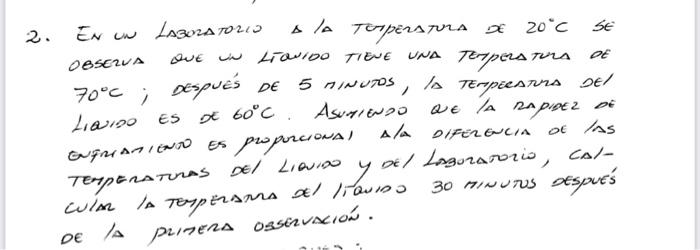 2. EN UN LABORATORIO A la TEMPERATURA DE 20°C SE
OBSERVA QUE UN LÍQUIDO TIENE UNA TEMPERATURA DE
70°C ; DESPUÉS DE 5 MINUTOS, la TEMPERATURA DEL
LIQUIDO ES DE 60°C. ASUMIENDO QUE LA RAPIDEZ DE
ENFRIAMIENTO ES PROPORCIONAL A la DIFERENCIA DE las
TEMPERATURAS DEL LIQUIDO y DEL LABORATORIO, CAL-
CULAR la TEMPERATURA DEL LÍQUIDO 30 MINUTOS DESPUÉS
DE la PRIMERA OBSERVACIÓN.